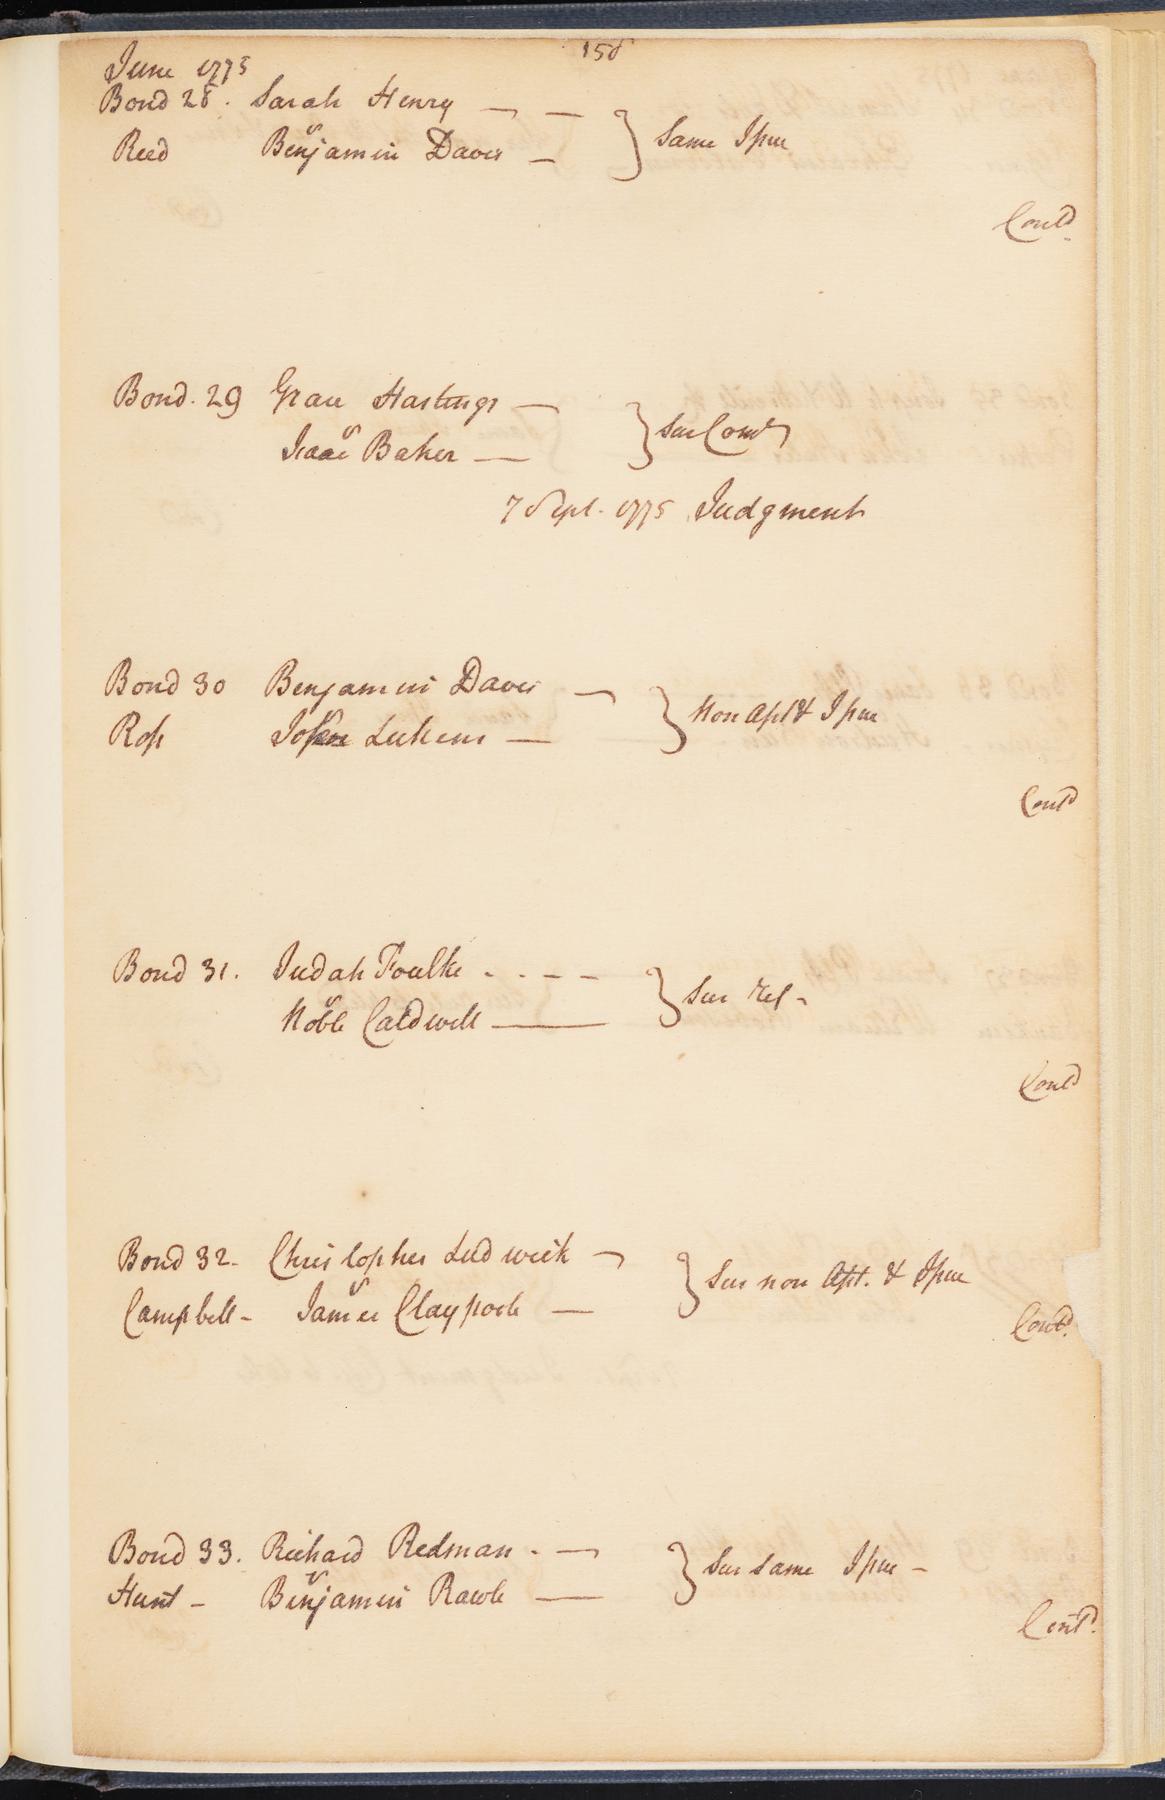 158
June 1775
Bond 28. Sarah Henry
vs
Reed Benjamin Davis } Same Ipm
Contd.
Bond. 29 Grace Hastings
vs
Isaac Baker } Sur Comd
7 Sept. 1775 Judgment
Bond 30 Benjamin Davis
Ross John Lukens } Non Apt & Ipm
Contd
Bond 31. Judah Foulke
vs
Noble Caldwell } Sur Rel
Contd
Bond 32. Christopher Ludwick
vs
Campbell James Claypoole } Sur non Apt. & Ipm
Contd.
Bond 33. Richard Redman
vs
Hunt Benjamin Rawle } Sur Same Ipm
Contd.